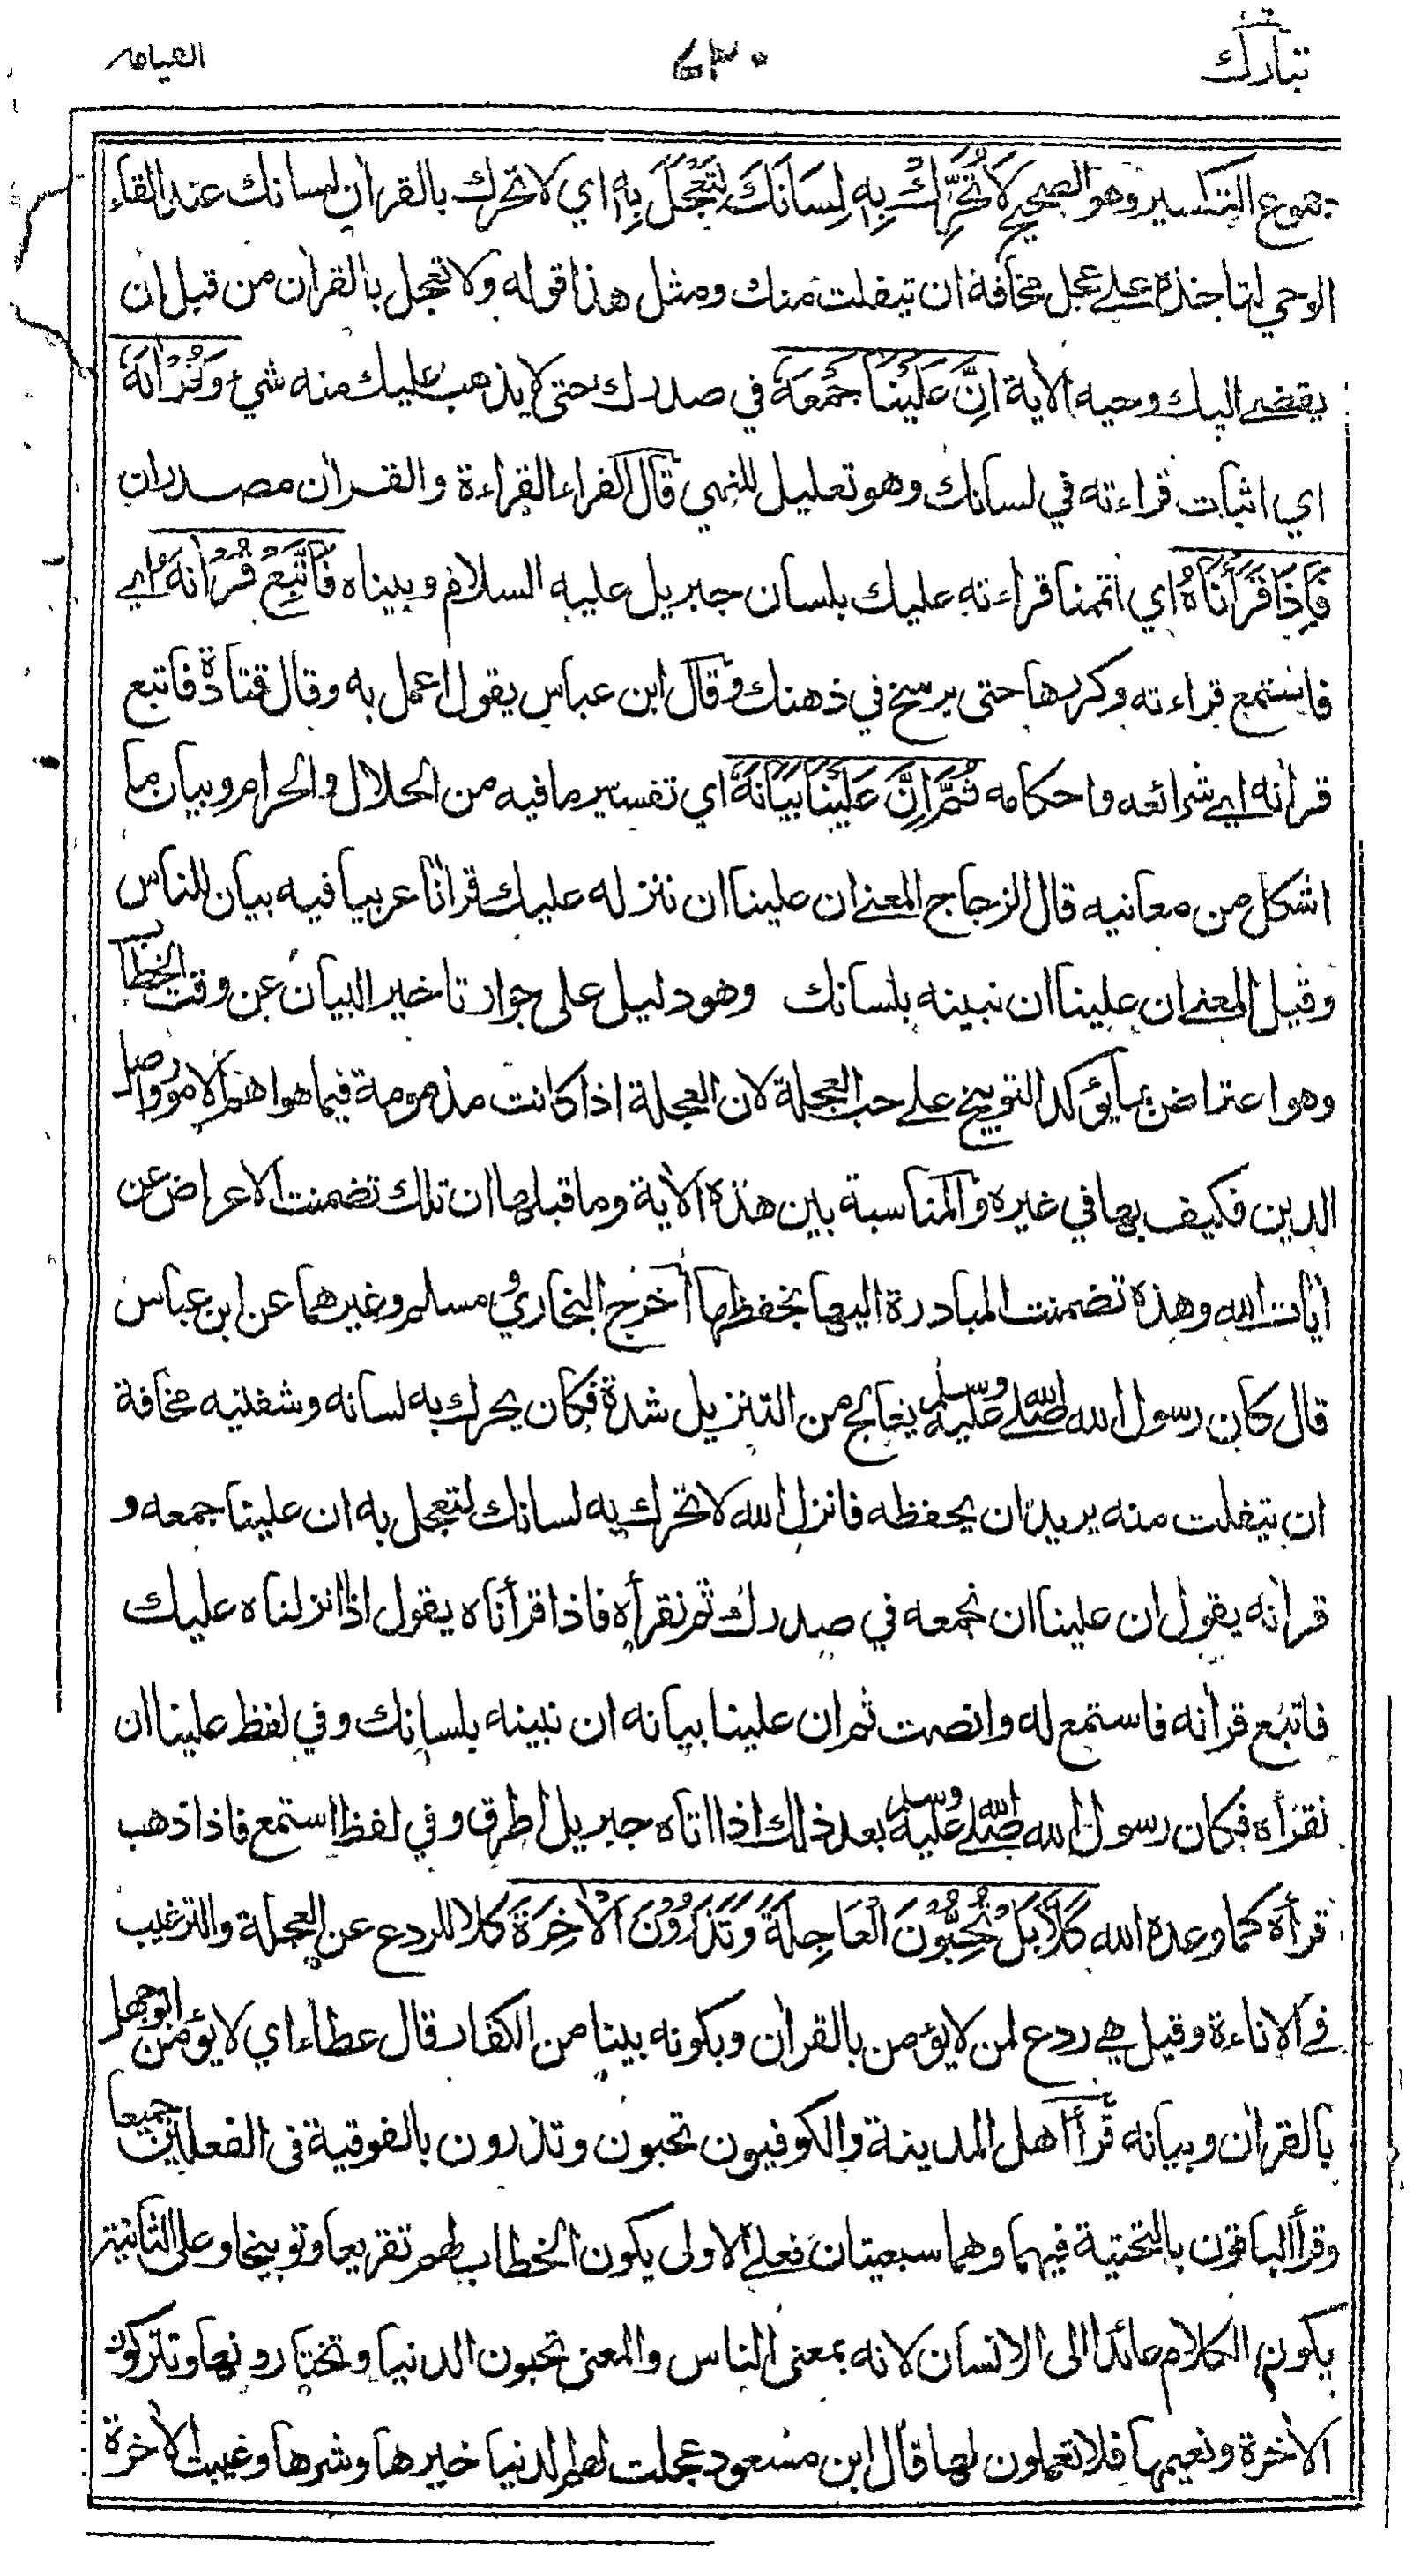 تبارك
٤٣٠
القيامه
جموع التكسير وهو الصحيح لَا تُحَرِّكْ بِهِ لِسَانَكَ لِتَعْجَلَ بِهِ اي لا تحرك بالقرأن لسانك عند القاء
الوحي لتاخذه على عجل مخافة ان يتفلت منك ومثل هذا قوله ولا تعجل بالقرأن من قبل ان
يقضے اليك وحيه الأية اِنَّ عَلَيْنَا جَمْعَهُ في صدرك حتى لا يذهب عليك منه شيء وَقُرْاٰنَهُ
اي اثبات قراءته في لسانك وهو تعليل للنهي قال الفراء القراءة والقران مصدران
فَاِذَا قَرَأْنَاهُ اي اتممنا قراءته عليك بلسان جبريل عليه السلام وبيناه فَاتَّبِعْ قُرْاٰنَهُ اي
فاستمع قراءته وكررها حتى يرسخ في ذهنك وقال ابن عباس يقول اعمل به وقال قتادة فاتبع
قرأنه اي شرائعه واحكامه ثُمَّ اِنَّ عَلَيْنَا بَيَانَهُ اي تفسير ما فيه من الحلال والحرام وبيان ما
اشكل من معانيه قال الزجاج المعنے ان علينا ان ننزله عليك قرأنا عربيا فيه بيان للناس
وقيل المعنے ان علينا ان نبينه بلسانك وهو دليل على جواز تاخير البيان عن وقت الخطاب
وهو اعتراض بما يؤكد التوبيخ على حب العجلة لان العجلة اذا كانت مذمومة فيما هو اهم الامور واصل
الدين فكيف بها في غيره والمناسبة بين هذه الأية وما قبلها ان تلك تضمنت الاعراض عن
أيات الله وهذه تضمنت المبادرة اليها بحفظها أخرج البخاري ومسلم وغيرهما عن ابن عباس
قال كان رسول الله صلى الله عليه وسلم يعالج من التنزيل شدة فكان يحرك به لسانه وشفتيه مخافة
ان يتفلت منه يريد ان يحفظه فانزل الله لا تحرك به لسانك لتعجل به ان علينا جمعه و
قرأنه يقول ان علينا ان نجمعه في صدرك ثم نقرأه فاذا قرأناه يقول اذا انزلناه عليك
فاتبع قرأنه فاستمع له وانصت ثم ان علينا بيانه ان نبينه بلسانك وفي لفظ علينا ان
نقرأه فكان رسول الله صلى الله عليه وسلم بعد ذلك اذا اتاه جبريل اطرق وفي لفظ استمع فاذا ذهب
قرأه كما وعده الله كَلَّا بَلْ تُحِبُّوْنَ الْعَاجِلَةَ وَتَذَرُوْنَ الْاٰخِرَةَ كلا للردع عن العجلة والترغيب
في الاناءة وقيل هي ردع لمن لا يؤمن بالقرأن وبكونه بينا من الكفار قال عطاء اي لا يؤمن ابوجهل
بالقرأن وبيانه قرأ اهل المدينة والكوفيون تحبون وتذرون بالفوقية فى الفعلين جميعا
وقرأ الباقون بالتحتية فيهما وهما سبعيتان فعلے الاولى يكون الخطاب لهم تقريعا وتوبيخا وعلى الثانية
يكون الكلام عائدا الى الانسان لانه بمعنى الناس والمعنى تحبون الدنيا وتختارونها وتتركون
الأخرة ونعيمها فلا تعملون لها قال ابن مسعود عجلت لهم الدنيا خيرها وشرها وغيبت الأخرة